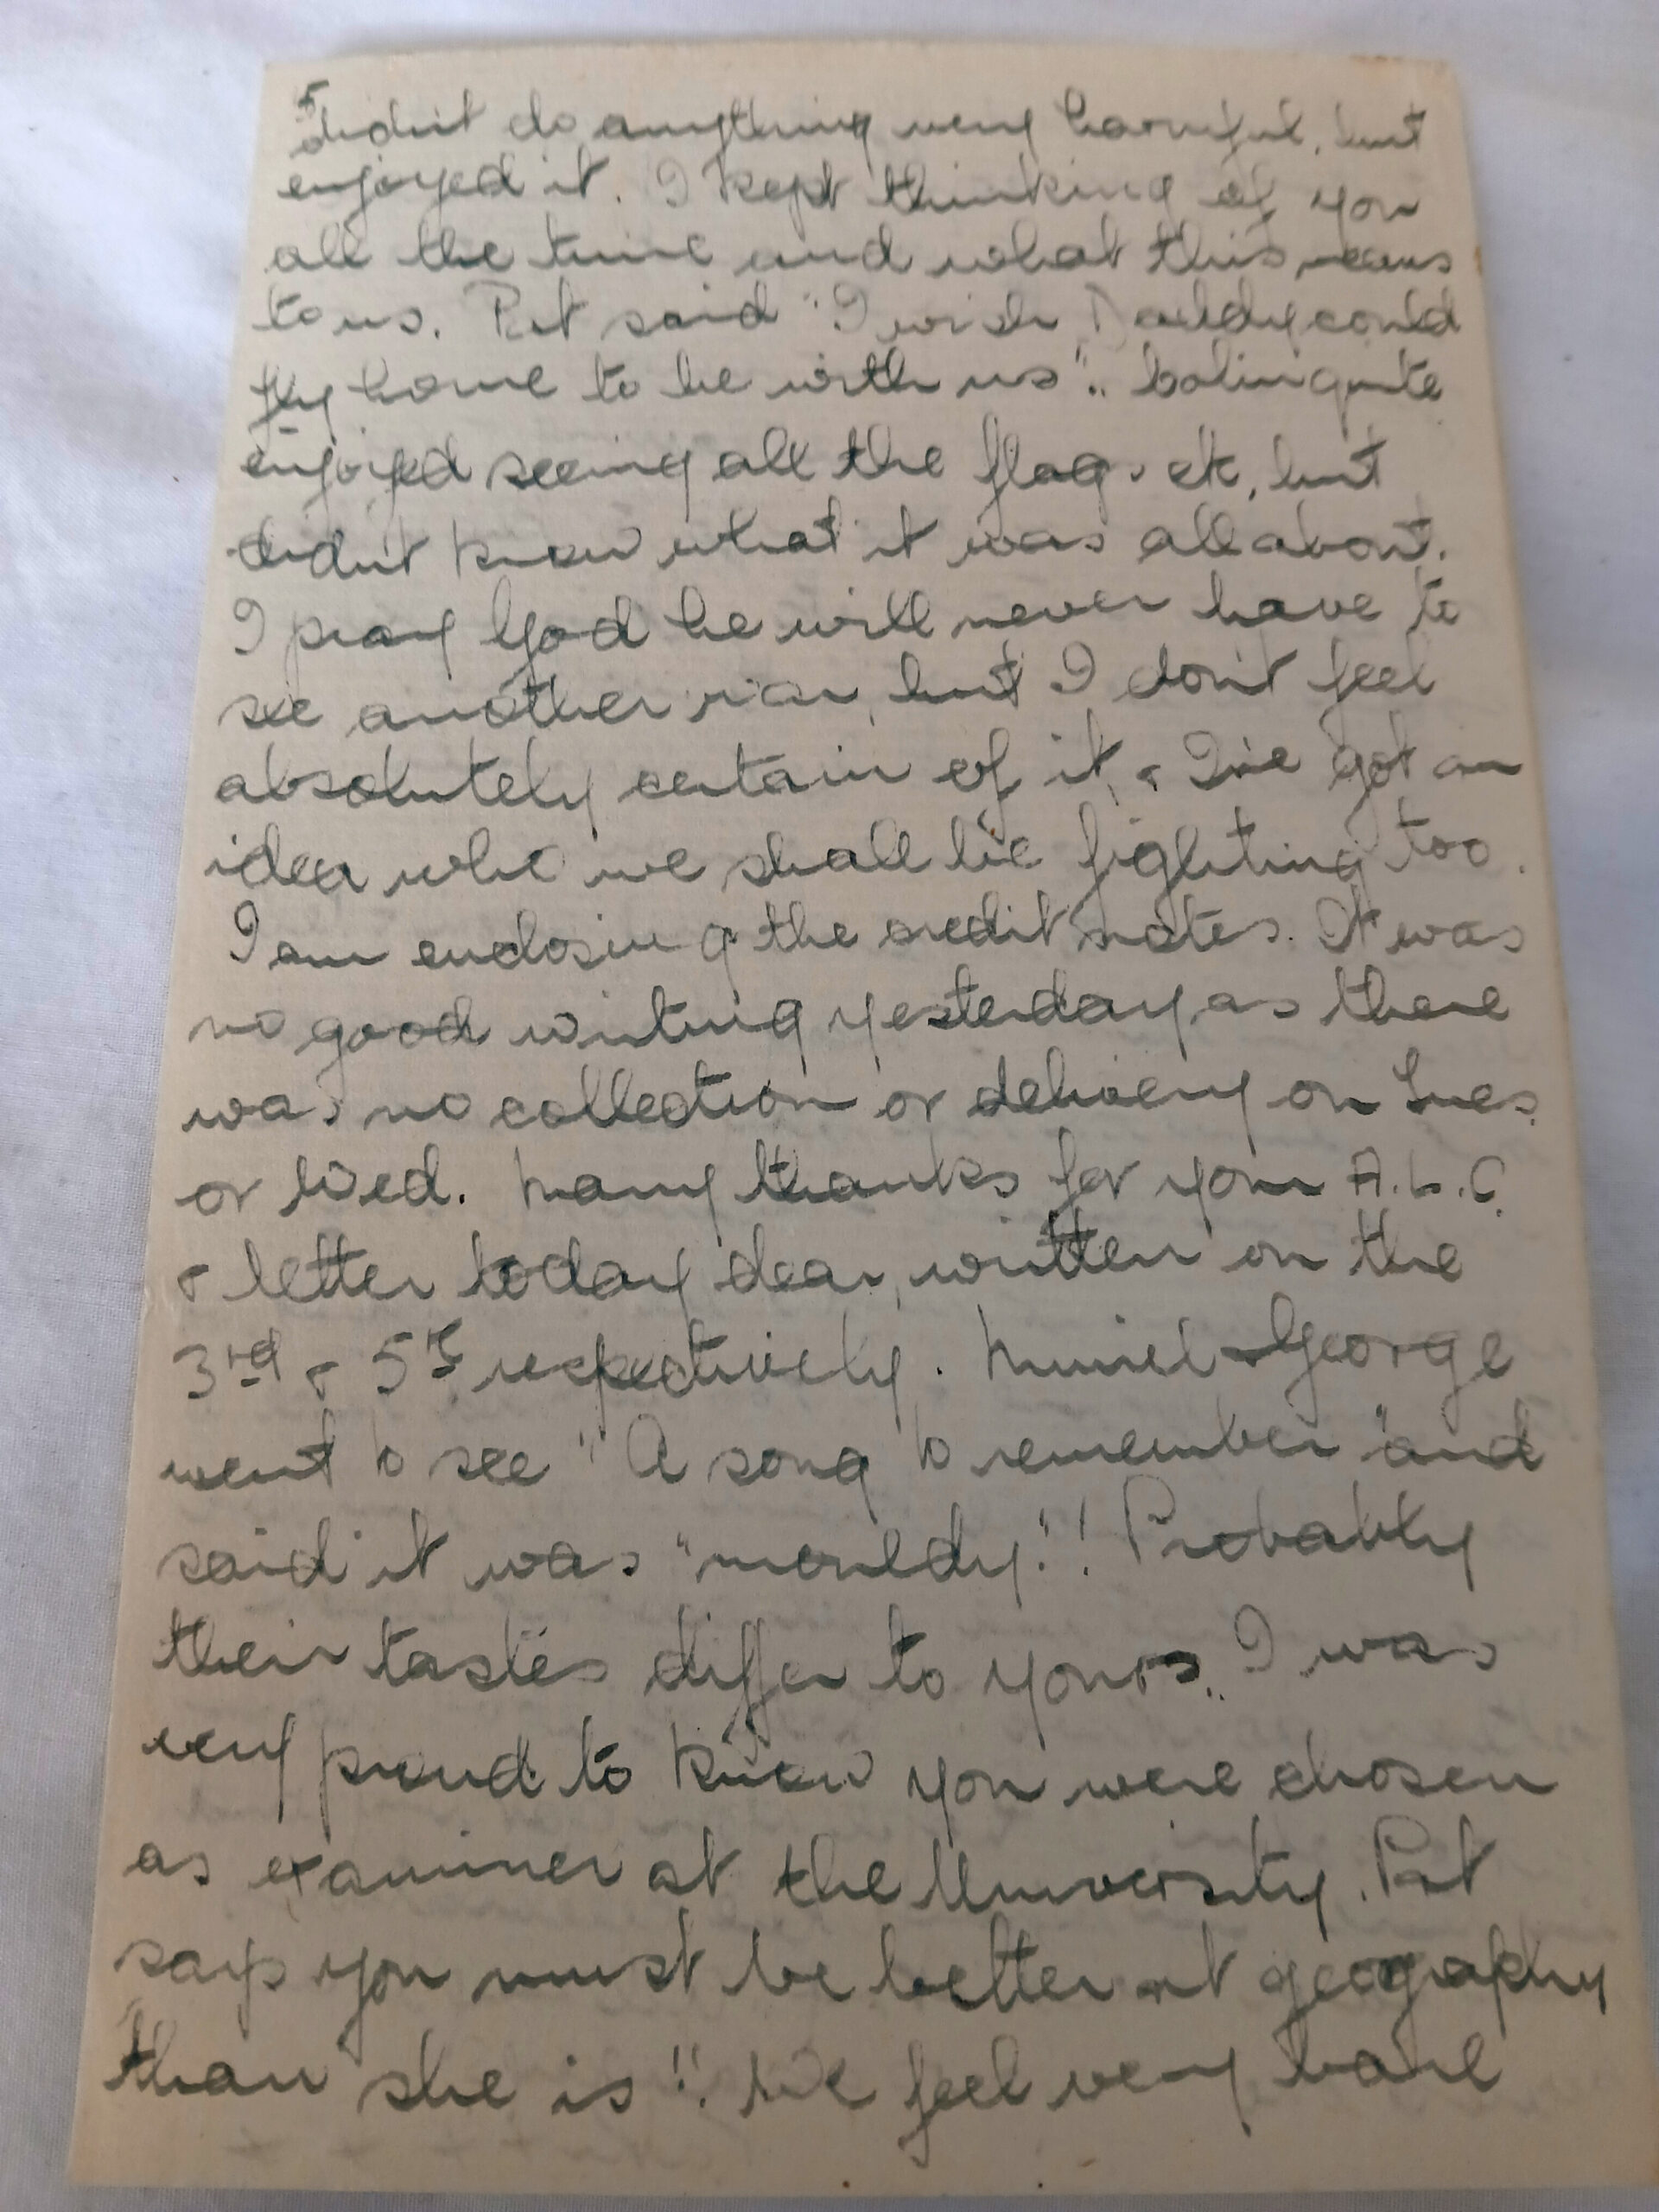 5
didn't do anything very harmful, but
enjoyed it. I kept thinking of you
all the time and what this means
to us. Pat said "I wish Daddy could
fly home to be with us". Colin quite
enjoyed seeing all the flags etc, but
didn't know what it was all about.
I pray God he will never have to
see another war, but I don't feel
absolutely certain of it, & I've got an
idea who we shall be fighting too.
I am enclosing the credit notes. It was
no good writing yesterday, as there
was no collection or delivery on Tues.
or Wed. Many thanks for your A.L.C.
& letter today dear, written on the
3rd & 5th respectively. Muriel & George
went to see "A song to remember" and
said it was "mouldy"!! Probably
their tastes differ to yours. I was
very proud to know you were chosen
as examiner at the University. Pat
says you must be better at geography
than she is!! We feel very